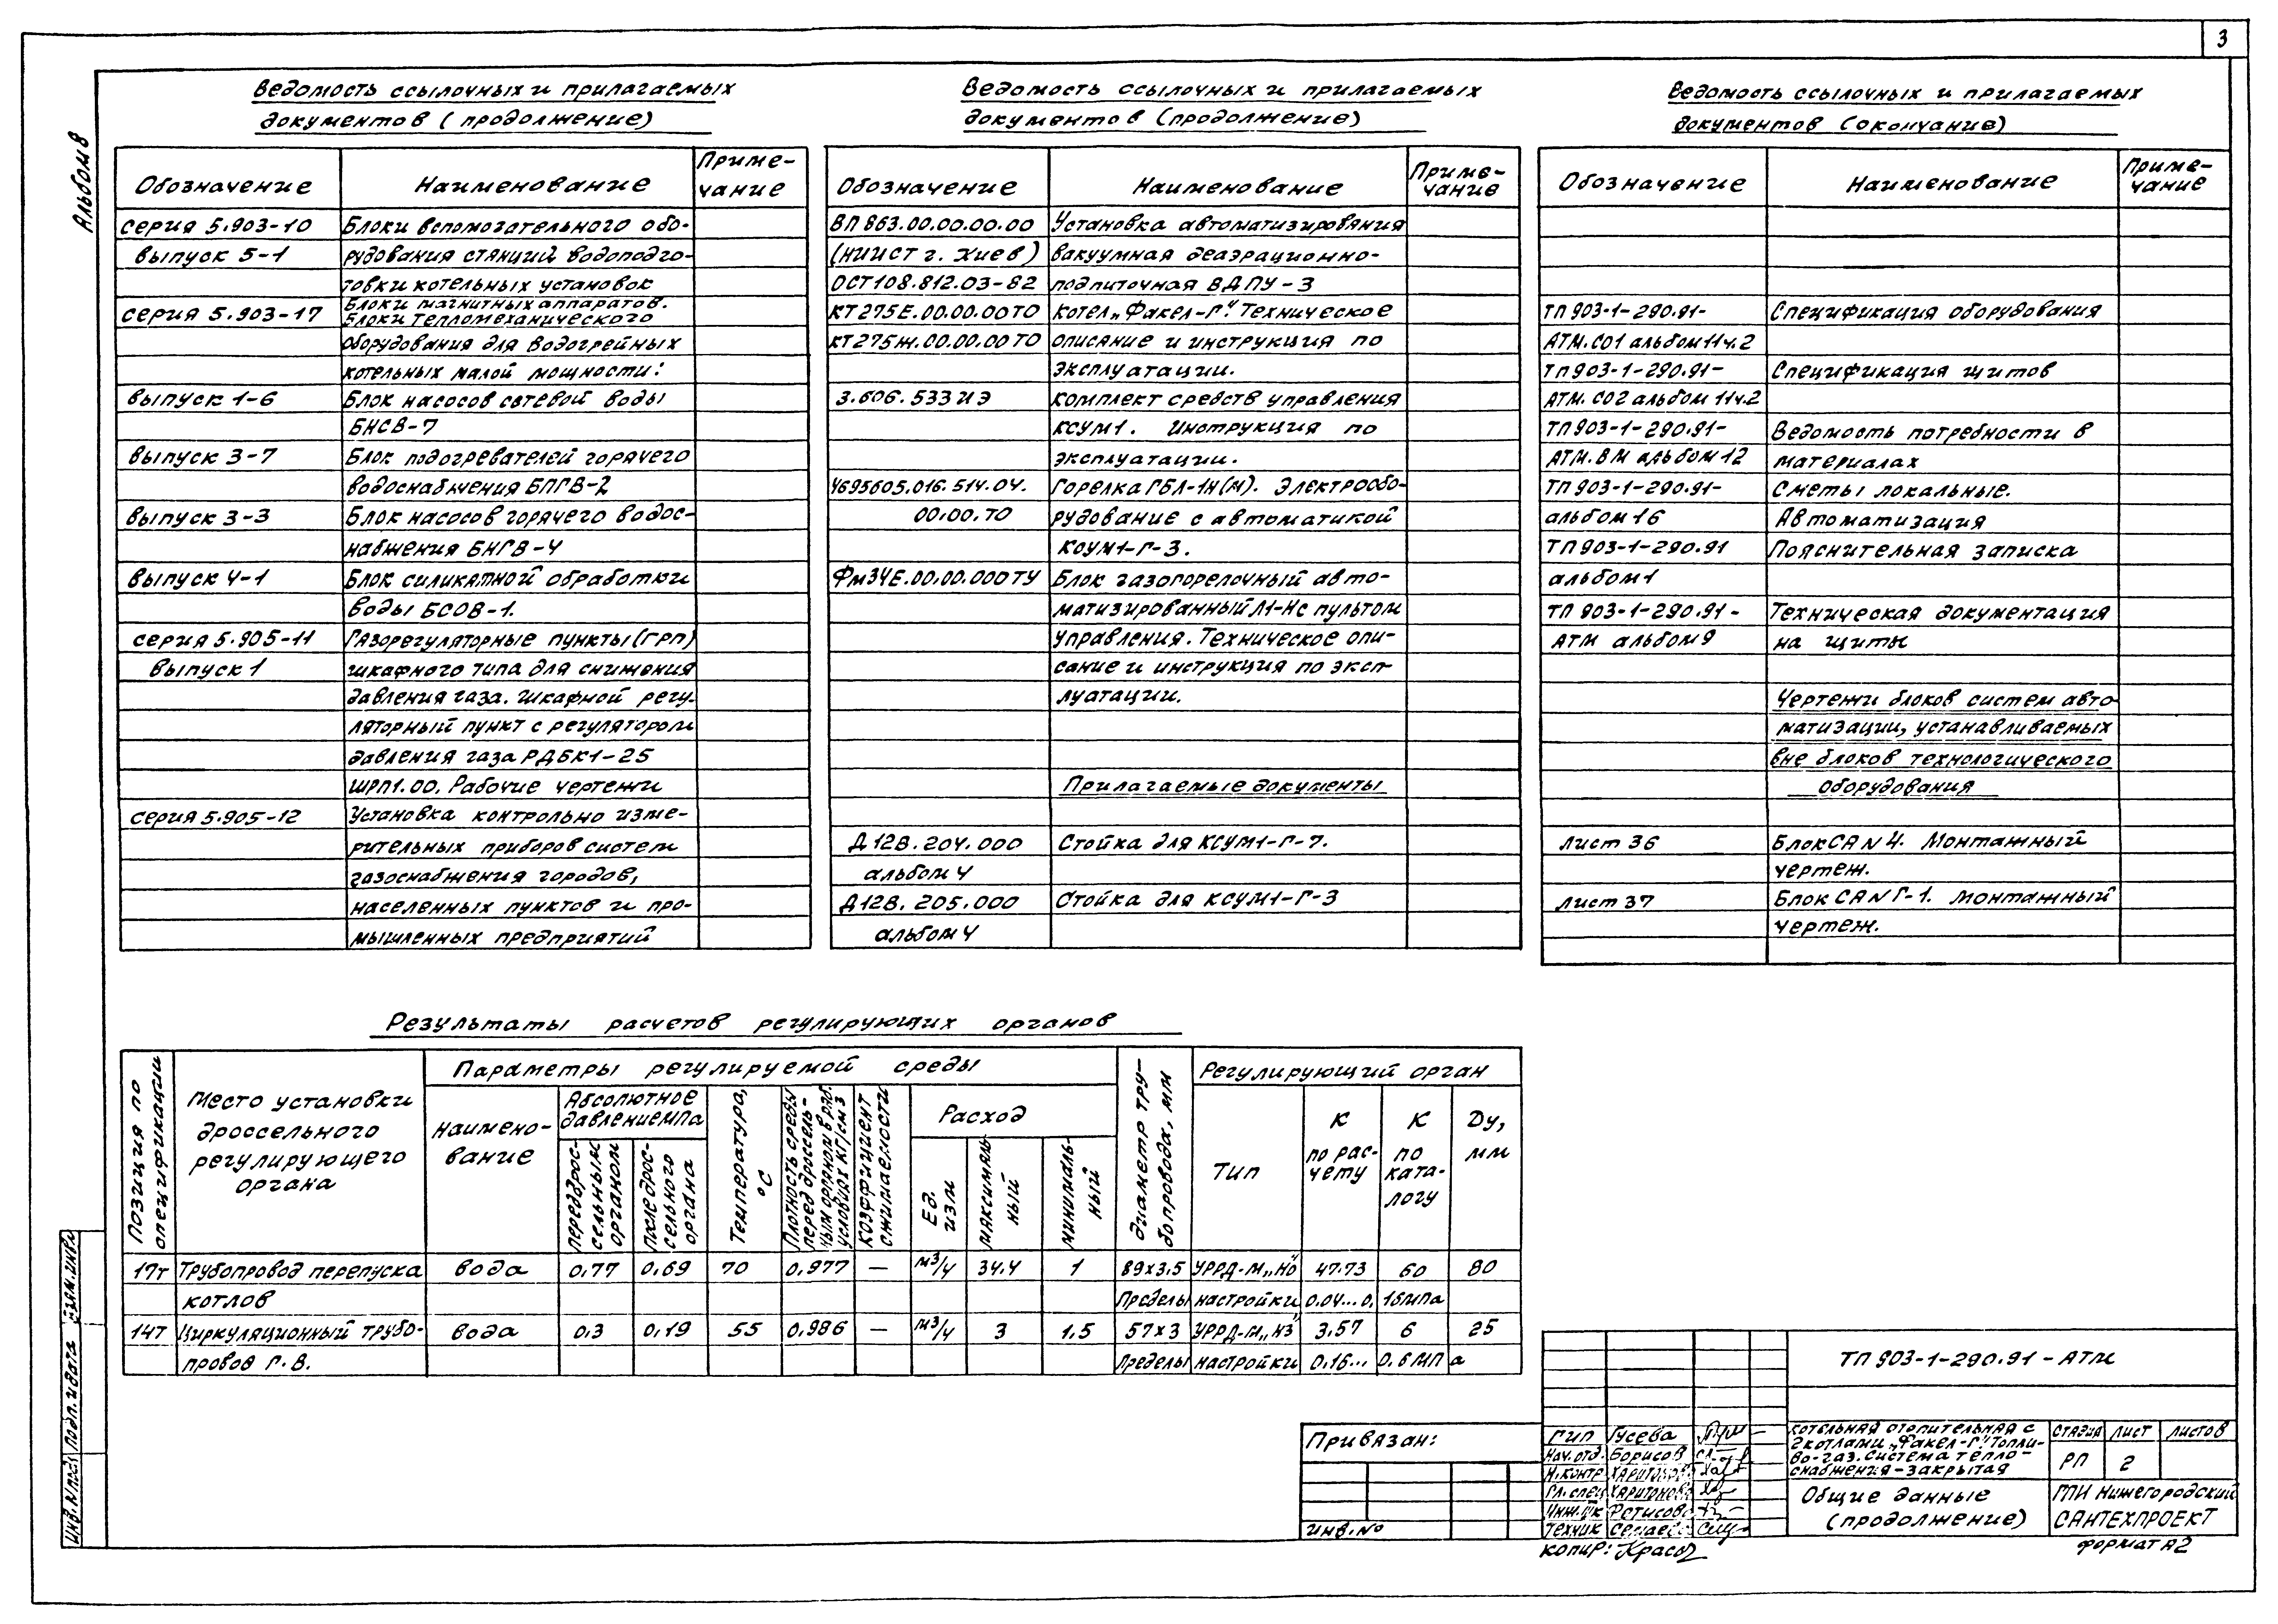 3
Альбом 8
Ведомость ссылочных и прилагаемых
документов (продолжение)
Обозначение Наименование Приме-
чание
серия 5.903-10 Блоки вспомогательного обо-
выпуск 5-1 рудования станций водоподго-
товки котельных установок
Блоки магнитных аппаратов.
серия 5.903-17 Блоки тепломеханического
оборудования для водогрейных
котельных малой мощности:
выпуск 1-6 Блок насосов сетевой воды
БНСВ-7
выпуск 3-7 Блок подогревателей горячего
водоснабжения БПГВ-2
выпуск 3-3 Блок насосов горячего водос-
набжения БНГВ-4
выпуск 4-1 Блок силикатной обработки
воды БСОВ-1.
серия 5.905-11 Газорегуляторные пункты (ГРП)
выпуск 1 шкафного типа для снижения
давления газа. Шкафной регу-
ляторный пункт с регулятором
давления газа РДБК1-25
ШРП1.00. Рабочие чертежи
серия 5.905-12 Установка контрольно изме-
рительных приборов систем
газоснабжения городов,
населенных пунктов и про-
мышленных предприятий
Ведомость ссылочных и прилагаемых
документов (продолжение)
Обозначение Наименование Приме-
чание
ВП 863.00.00.00.00 Установка автоматизированая
(НИИСТ г. Киев) вакуумная деаэрационно-
ОСТ108.812.03-82 подпиточная ВДПУ-3
КТ275Е.00.00.00ТО Котел „Факел-Г". Техническое
КТ275Ж.00.00.00ТО описание и инструкция по
эксплуатации.
3.606.533ИЭ Комплект средств управления
КСУМ1. Инструкция по
эксплуатации.
Ч695605.016.514.04. Горелка ГБЛ-1Н(М). Электрообо-
00.00.ТО рудование с автоматикой
КСУМ1-Г-3.
ФМ34Е.00.00.000ТУ Блок газогорелочный авто-
матизированный Л1-Нс пультом
управления. Техническое опи-
сание и инструкция по эксп-
луатации.
Прилагаемые документы
Д128.204.000 Стойка для КСУМ1-Г-7.
альбом 4
Д128.205.000 Стойка для КСУМ1-Г-3
альбом 4
Ведомость ссылочных и прилагаемых
документов (окончание)
Обозначение Наименование Приме-
чание
ТП 903-1-290.91- Спецификация оборудования
АТМ.СО1 альбом 11ч.2
ТП 903-1-290.91- Спецификация щитов
АТМ.СО2 альбом 11ч.2
ТП 903-1-290.91- Ведомость потребности в
АТМ.ВМ альбом 12 материалах
ТП 903-1-290.91- Сметы локальные.
альбом 16 Автоматизация
ТП 903-1-290.91 Пояснительная записка
альбом 1
ТП 903-1-290.91- Техническая документация
АТМ альбом 9 на щиты
Чертежи блоков систем авто-
матизации, устанавливаемых
вне блоков технологического
оборудования
Лист 36 Блок САN 4. Монтажный
чертеж.
Лист 37 Блок САN Г-1. Монтажный
чертеж.
Результаты расчетов регулирующих органов
Позиция по спецификации
Место установки
дроссельного
регулирующего
органа
Параметры регулируемой среды
Наимено-
вание
Абсолютное
давление МПа
перед дрос-
сельным
органом
после дрос-
сельного
органа
Температура,
°С
Плотность среды
перед дроссель-
ным органом в раб.
условиях кг/см3
Коэффициент
сжимаемости
Расход
Ед.
изм
максималь-
ный
минималь-
ный
Диаметр тру-
бопровода, мм
Регулирующий орган
Тип
К
по рас-
чету
К
по
ката-
логу
Ду,
мм
17т Трубопровод перепуска вода 0,77 0,69 70 0,977 — м3/ч 34.4 1 89x3.5 УРРД-М „НО" 47.73 60 80
котлов Пределы настройки 0.04...0,16МПа
14т Циркуляционный трубо- вода 0.3 0,19 55 0,986 — м3/ч 3 1.5 57x3 УРРД-М „НЗ" 3.57 6 25
провод Г.В. Пределы настройки 0.16... 0.6МПа
Взам.инв.№
Подп. и дата
Инв.№подл
Привязан:
Инв.№
ГИП Гусева
Нач.отд. Борисов
Н.контр Харитонова
Гл.спец Харитонова
Инж.IIк
Техник
Копир:
ТП 903-1-290.91-АТМ
Котельная отопительная с
2 котлами „Факел-Г". Топли-
во-газ. Система тепло-
снабжения-закрытая
Стадия Лист Листов
РП 2
Общие данные
(продолжение)
ГПИ Нижегородский
САНТЕХПРОЕКТ
Формат А2